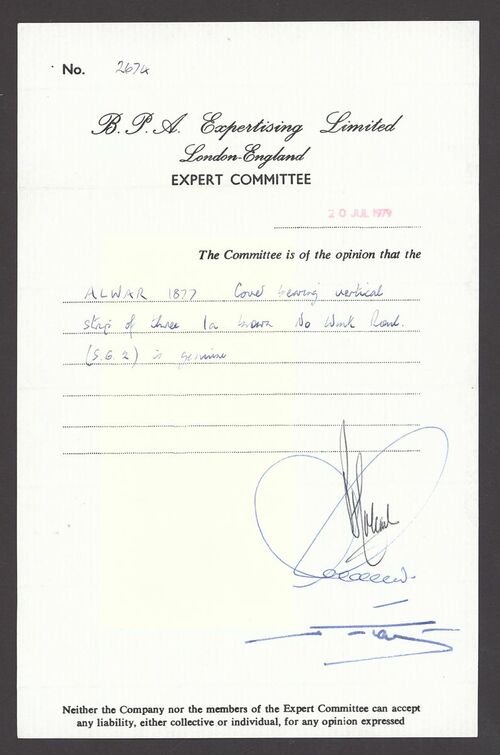 No. 2674
B. P. A. Expertising Limited
London-England
EXPERT COMMITTEE
20 JUL 1979
The Committee is of the opinion that the
ALWAR 1877 Cover bearing vertical
strip of three 1a brown No Wmk Roul.
(S.G. 2) is genuine
Neither the Company nor the members of the Expert Committee can accept
any liability, either collective or individual, for any opinion expressed